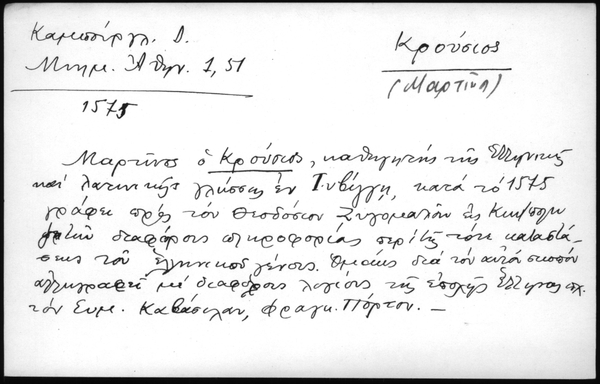 Καμπούρογλ. Δ.
Μνημ. Ἀθην. 1, 51
1575
Κρούσιος
(Μαρτῖνος)
Μαρτῖνος ὁ Κρούσιος, καθηγητής τῆς Ἑλληνικῆς
καί λατινικῆς γλώσσης ἐν Τυβίγγῃ, κατά τό 1575
γράφει πρός τόν Θεοδόσιον Ζυγομαλᾶν εἰς Κων/πολιν
ζητῶν διαφόρους πληροφορίας περί τῆς τότε καταστά-
σεως τοῦ ἑλληνικοῦ γένους. Ὁμοίως διά τόν αὐτό σκοπόν
ἀλληλογραφεῖ μέ διαφόρους λογίους τῆς ἐποχῆς Ἕλληνας π.χ.
τόν Συμ. Καβάσιλαν, Φραγκ. Πόρτον. —